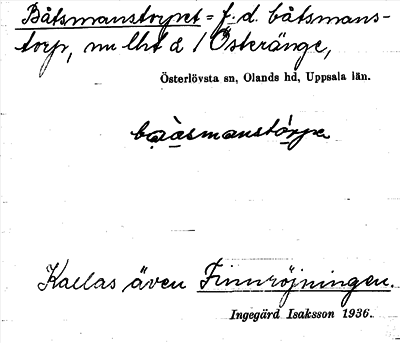 Båtsmanstorpet = f. d. båtsmans-
torp, nu lht d / Österänge,
Österlövsta sn, Olands hd, Uppsala län.
bàasmanstórpe
Kallas även Finnröjningen.
Ingegärd Isaksson 1936.